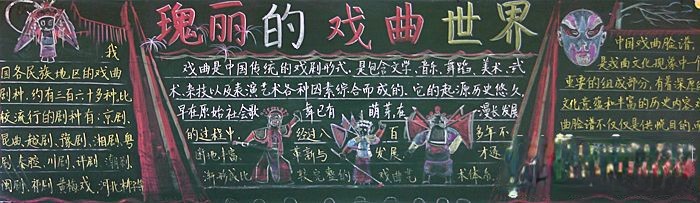 瑰丽的戏曲世界
我
国各民族地区的戏曲
剧种,约有三百六十多种,比
较流行的剧种有:京剧、
昆曲、越剧、豫剧、湘剧、粤
剧、秦腔、川剧、评剧、潮剧、
闽剧、祁剧、黄梅戏、河北梆
戏曲是中国传统的戏剧形式,是包含文学、音乐、舞蹈、美术、武
术、杂技以及表演艺术各种因素综合而成的。它的起源历史悠久,
早在原始社会歌舞已有萌芽,在漫长发展
的过程中,经过八百多年不
断地丰富、革新与发展,才逐
渐形成比较完整的戏曲艺术体系。
中国戏曲脸谱
是戏曲文化现象中一个
重要的组成部分,有着深厚的
文化意蕴和丰富的历史内容。
曲脸谱不仅仅是供悦目的